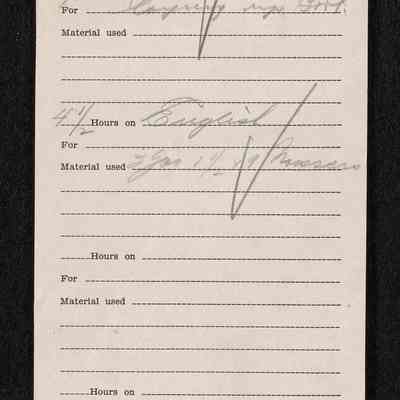 For up
Material used
4 1/2 Hours on English
For
Material used 1 1/2
Hours on
For
Material used
Hours on